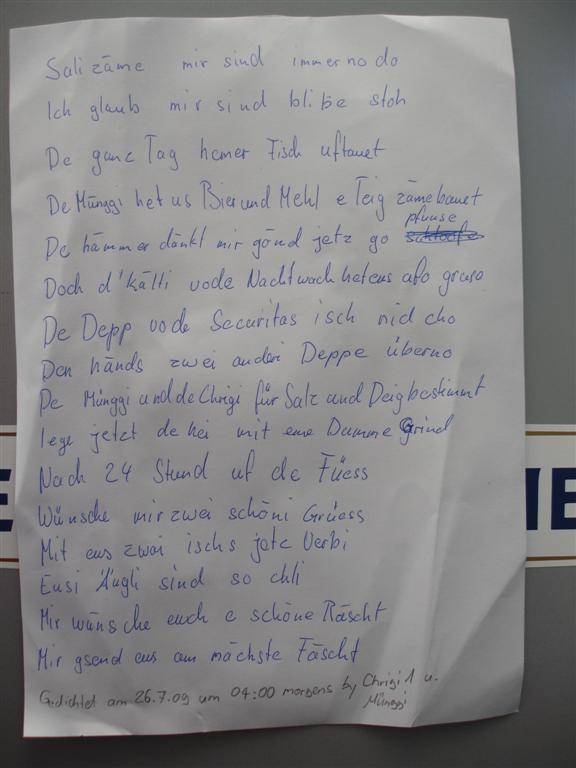 Sali zäme mir sind immer no do
Ich glaub mir sind blibe stoh
De ganz Tag hemer Fisch uftauet
De Münggi het us Bier und Mehl e Teig zämebauet
pfuuse
De hämmer dänkt mir gönd jetz go
Doch d'kälti vode Nachtwach hetens afo gruso
De Depp vode Securitas isch nid cho
Den händs zwei anderi Deppe überno
De Münggi und de Chrigi für Salz und Deig bestimmt
lege jetzt de hei mit eme Dumme Grind
Nach 24 Stund uf de Füess
Wünsche mir zwei schöni Grüess
Mit eus zwoi ischs jetz Verbi
Eusi Äugli sind so chli
Mir wünsche euch e schöne Räscht
Mir gsend eus am nächste Fäscht
Gedichtet am 26.7.09 um 04:00 morgens by Chrigi 1 u.
Münggi
E
IE